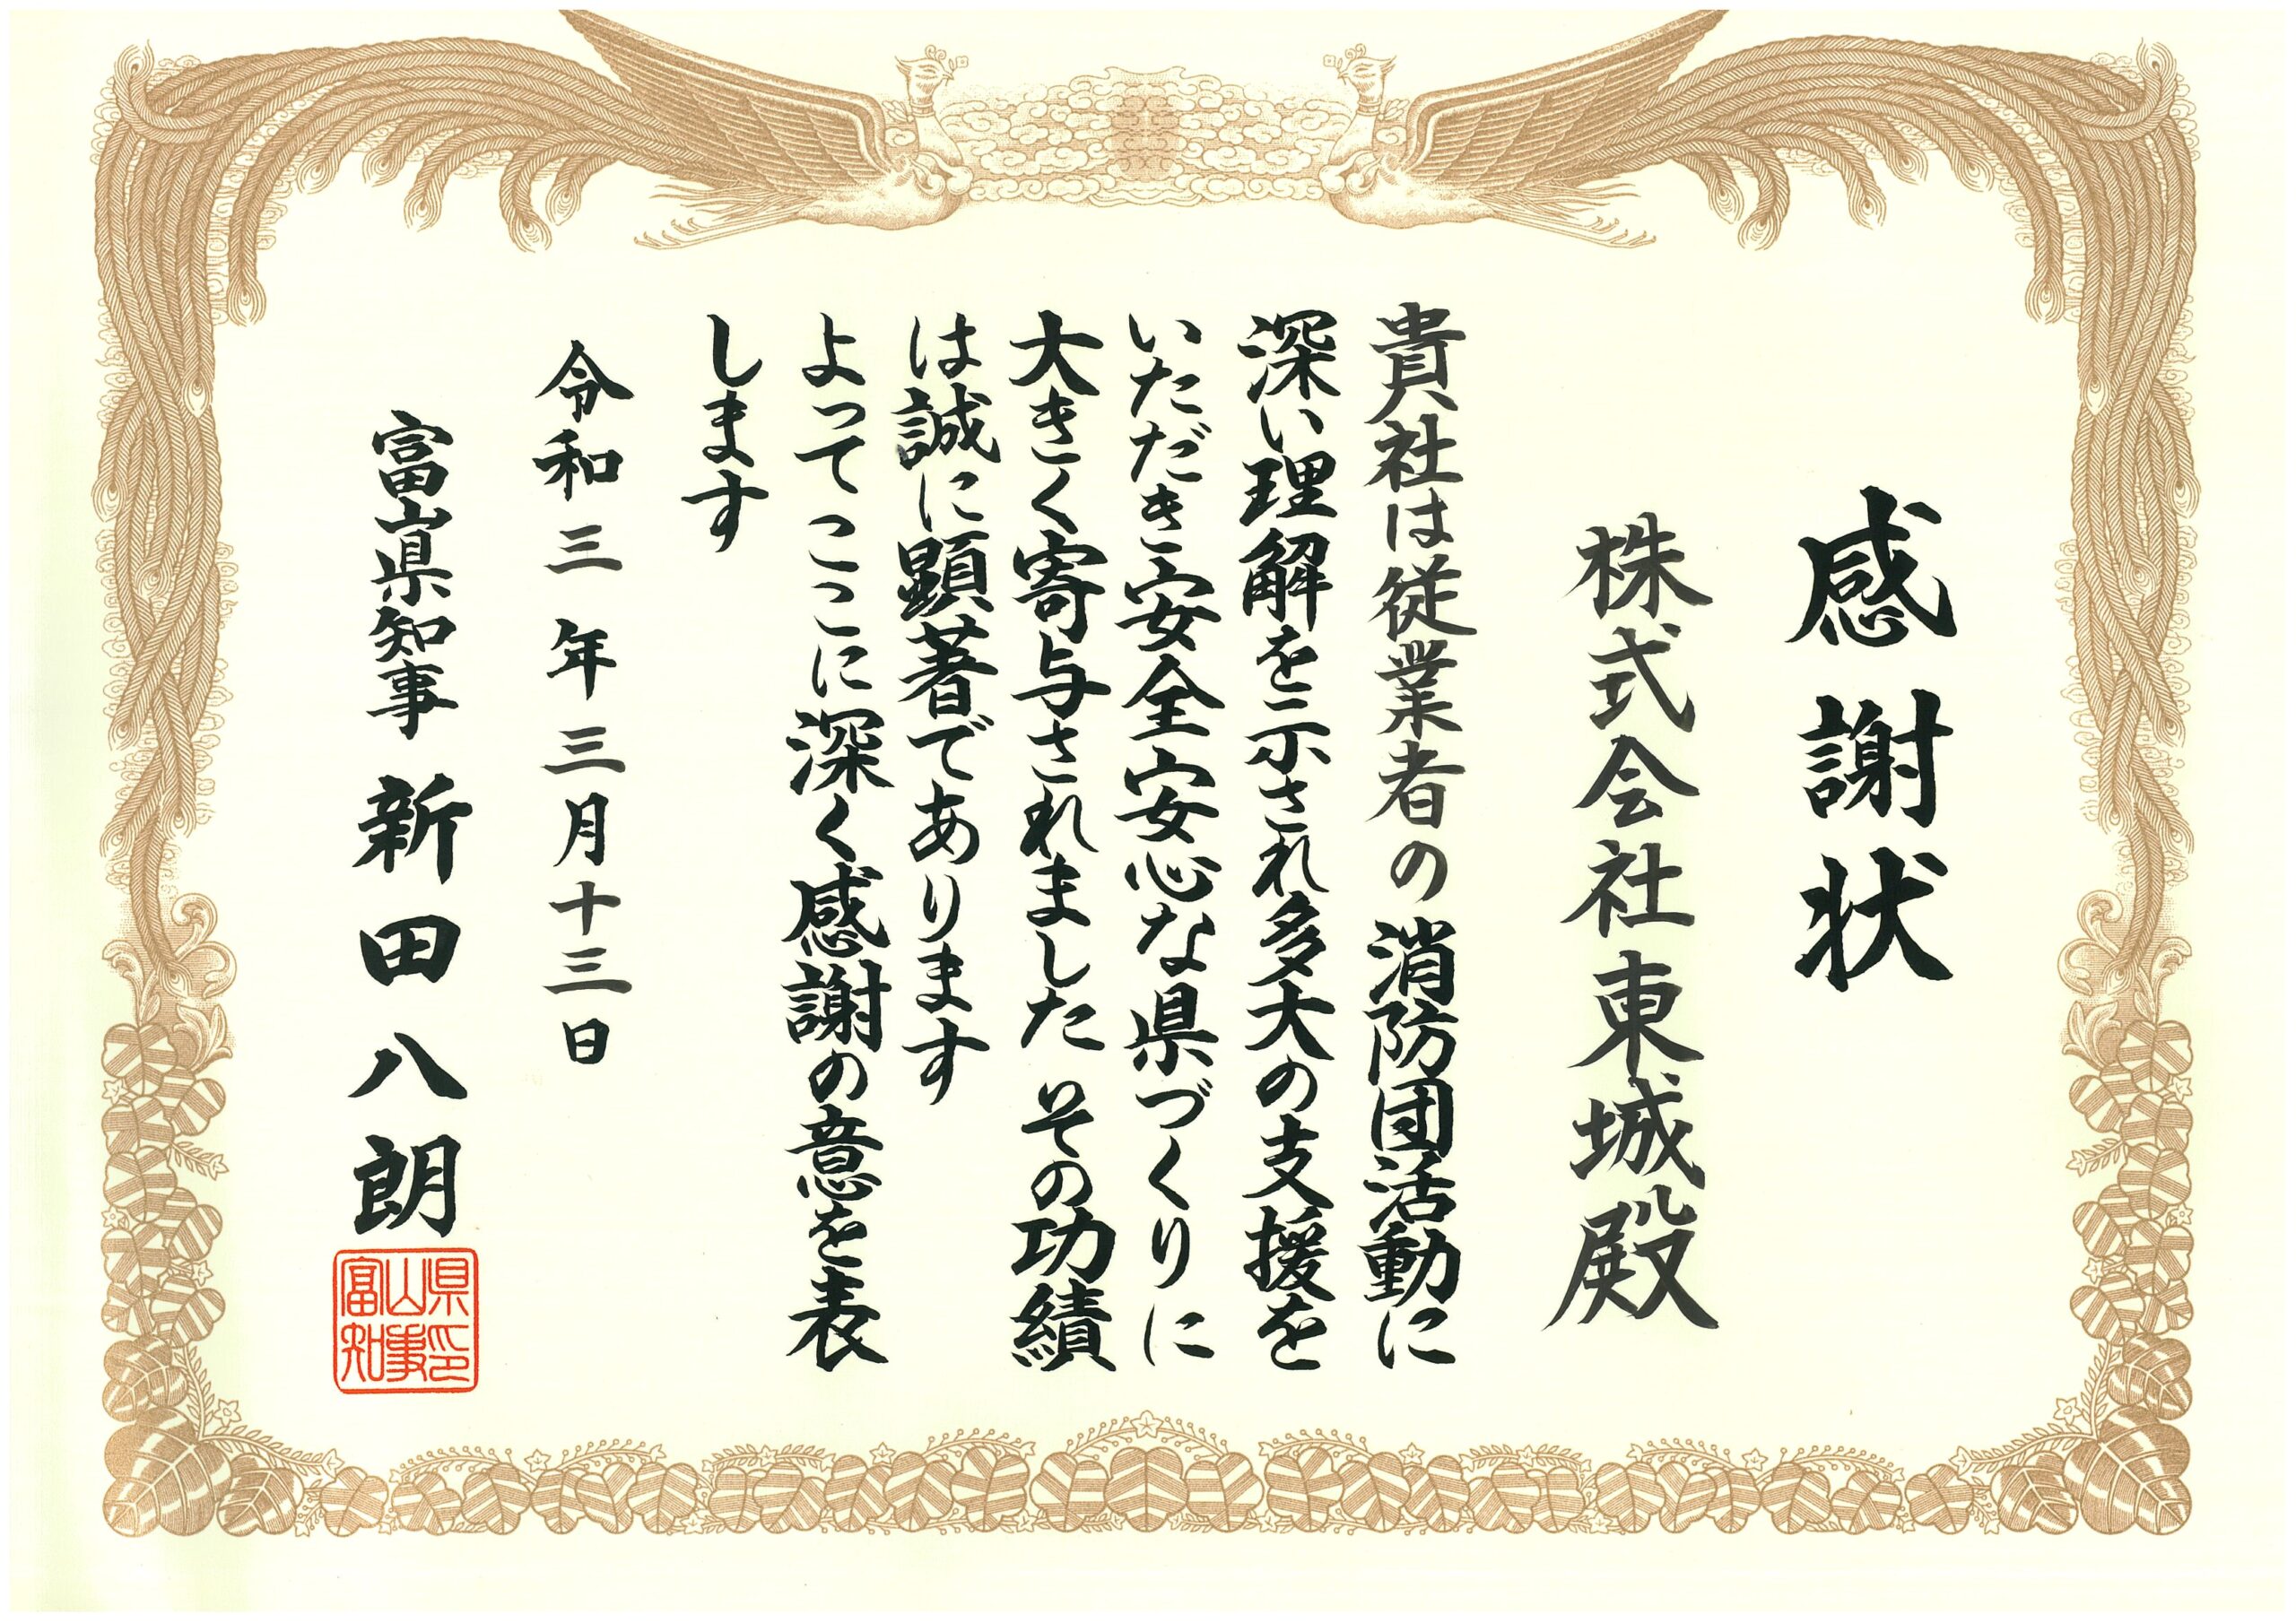 感謝状
株式会社東城殿
貴社は従業者の消防団活動に
深い理解を示され多大の支援を
いただき安全安心な県づくりに
大きく寄与されました その功績
は誠に顕著であります
よってここに深く感謝の意を表
します
令和三年三月十三日
富山県知事 新田八朗
富山県
知事印